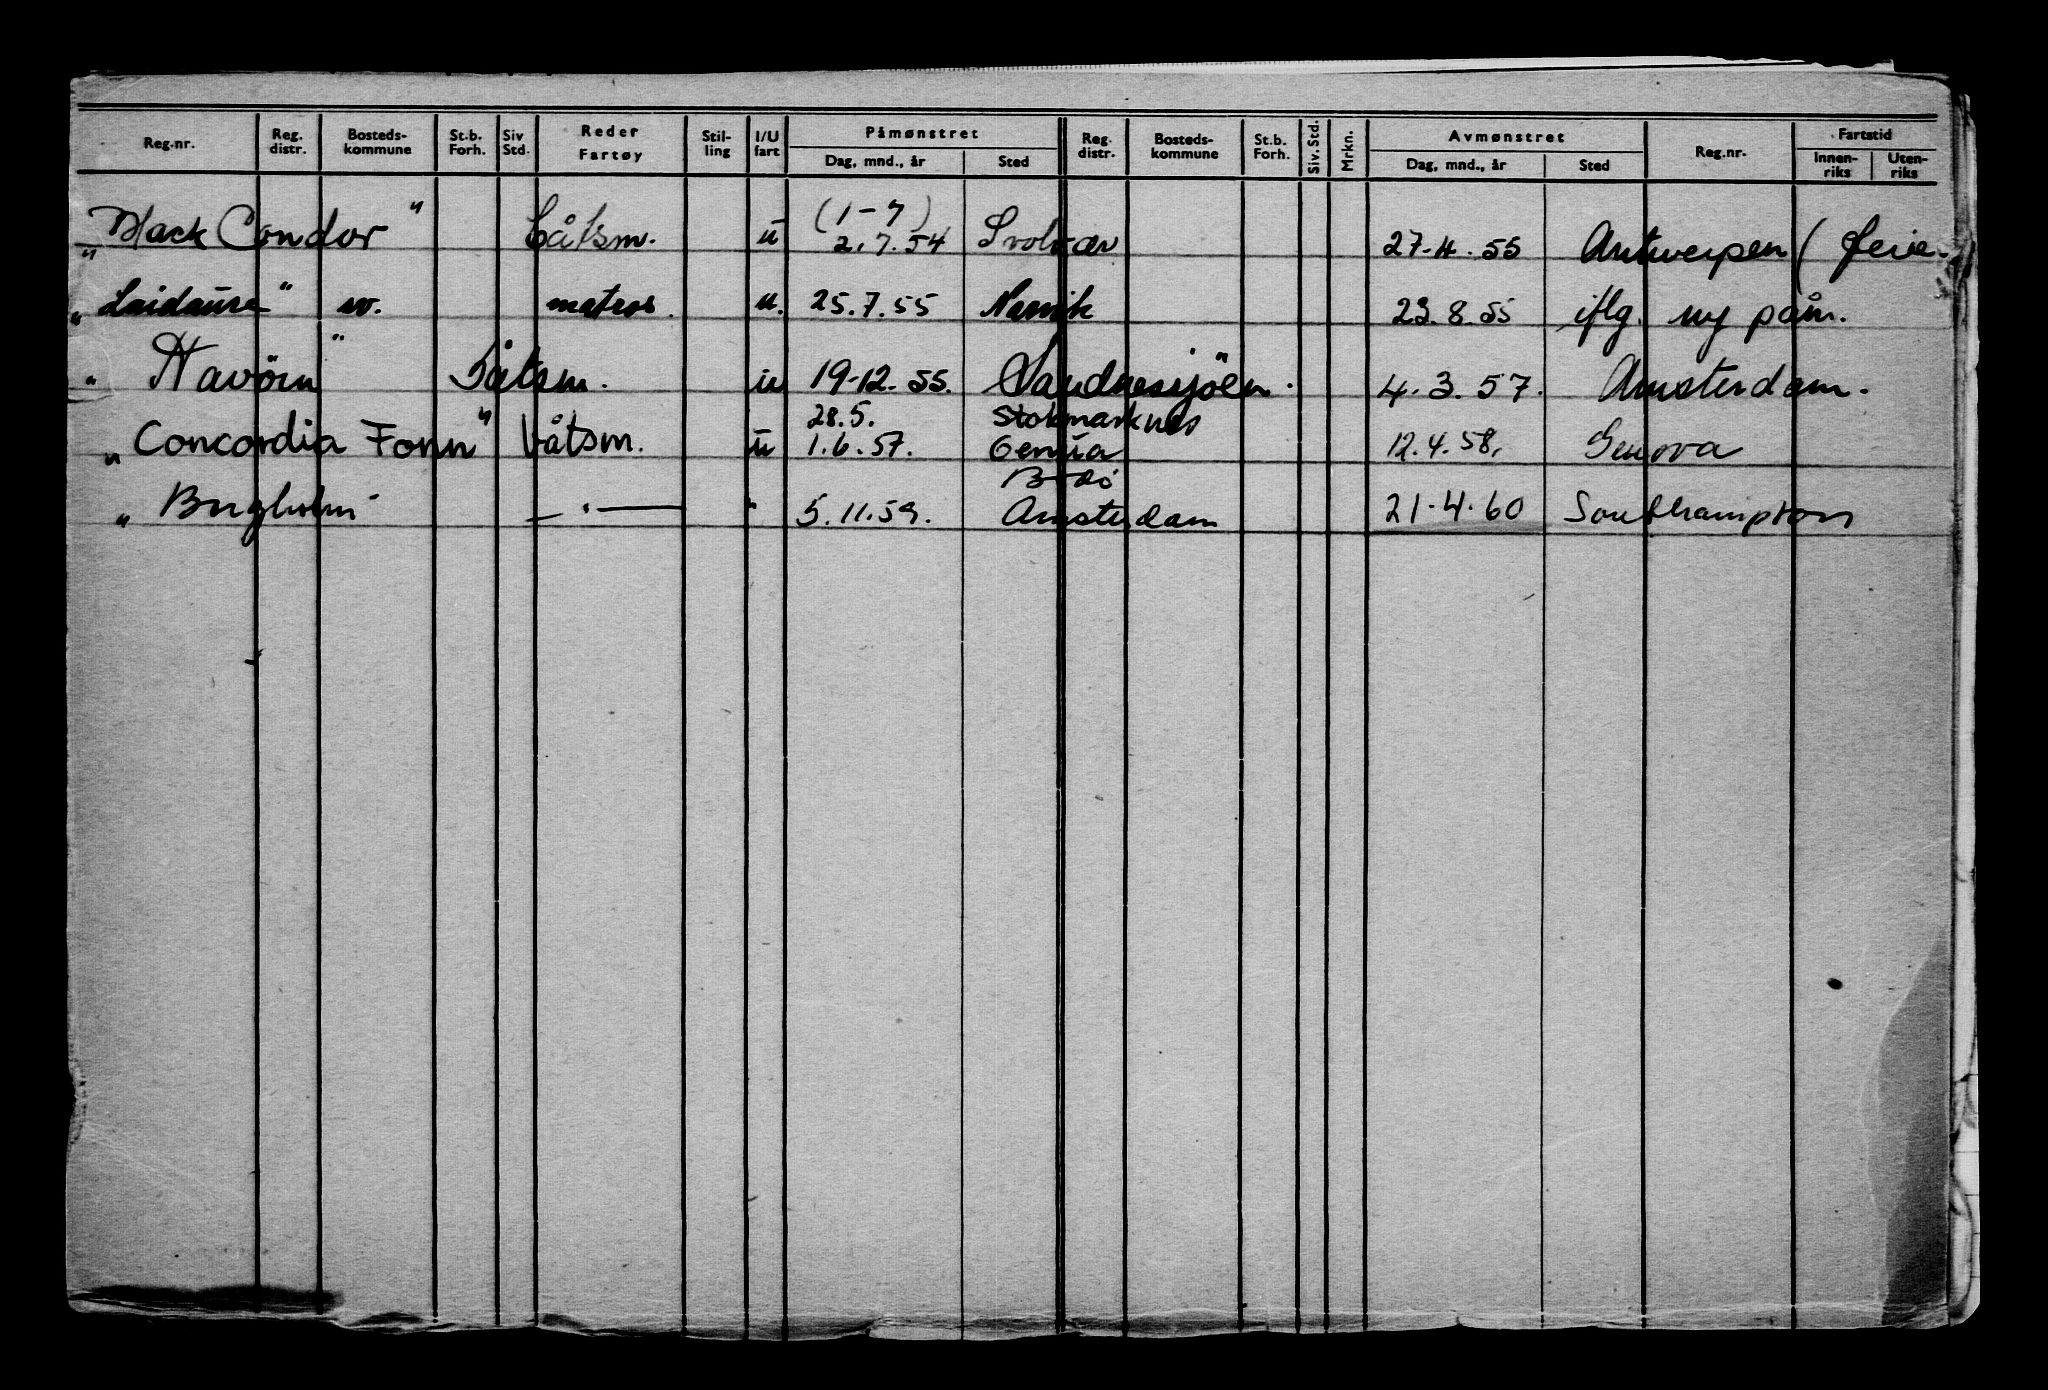 Reg.nr. Reg. distr. Bosteds-kommune St.b. Forh. Siv Std. Reder Fartøy Stil-ling I/U fart Påmønstret Dag, mnd., år Sted Reg. distr. Bosteds-kommune St.b. Forh. Siv. Std. Mrkn. Avmønstret Dag, mnd., år Sted Reg.nr. Fartstid Innen-riks Uten-riks
(1-7)
„Black Condor" båtsm. u 2.7.54 Svolvær 27-4.55 Antwerpen (ferie.
„Laidaure" sv. matros. u. 25.7.55 Narvik 23.8.55 iflg. ny påm.
„Havörn" Båtsm. u 19-12.55. Sandnessjöen. 4.3.57. Amsterdam.
28.5. Stokmarknes
„Concordia Fonn" båtsm. u 1.6.57. Genua 12.4.58. Genova
Bodö
„ —"— " 5.11.59. Amsterdam 21-4.60 Southampton